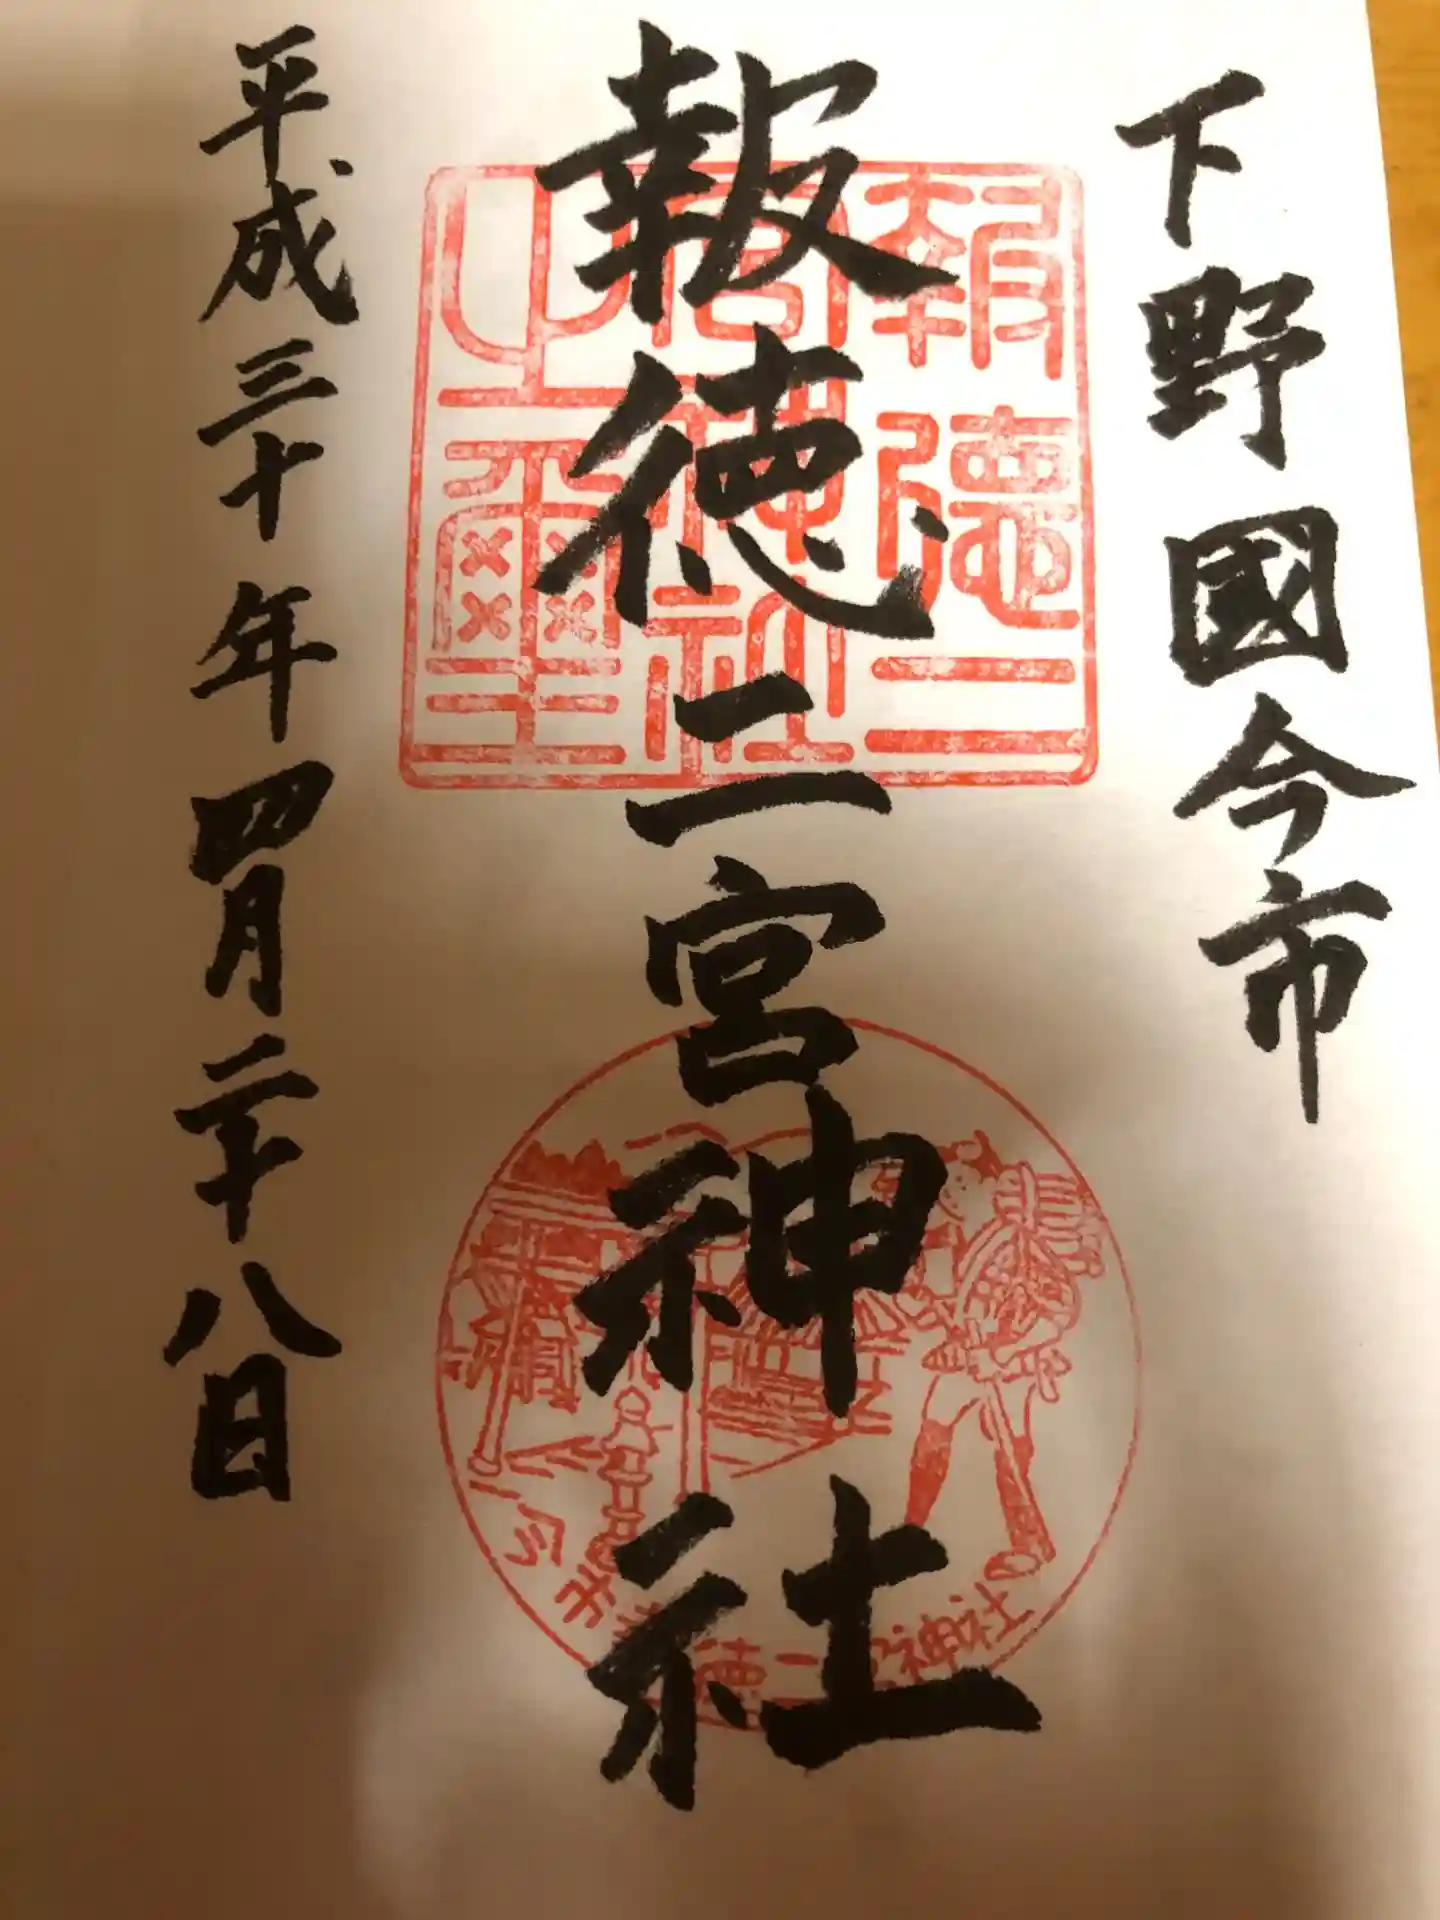 下野國今市
報徳二宮神社
平成三十年四月二十八日
報德二
宮神社
之璽
今市報徳二宮神社